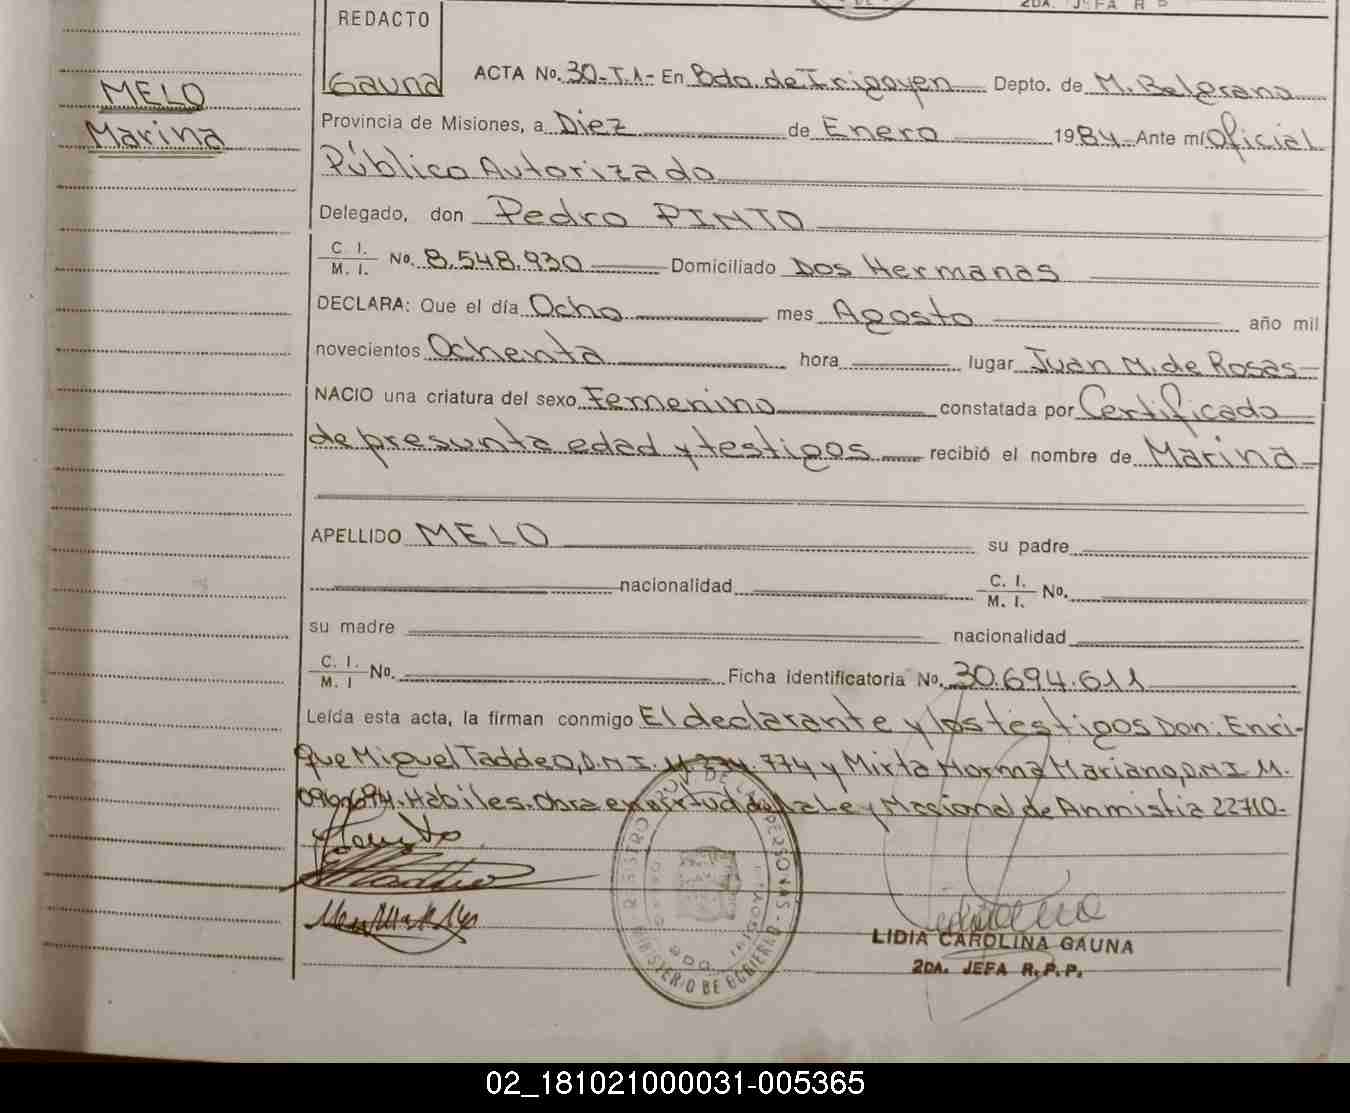 REDACTO
2DA. JEFA R P
MELO
Marina
Gauna
ACTA No. 30-T.1- En Bdo. de Irigoyen Depto. de M. Belgrano
Provincia de Misiones, a Diez de Enero 1984 Ante mí Oficial
Público Autorizado
Delegado, don Pedro PINTO
C. I. M. I. No. 8.548.930 Domiciliado Dos Hermanas
DECLARA: Que el día Ocho mes Agosto año mil
novecientos Ochenta hora lugar Juan M. de Rosas
NACIO una criatura del sexo Femenino constatada por Certificado
de presunta edad y testigos recibió el nombre de Marina
APELLIDO MELO su padre
nacionalidad C. I. M. I. No.
su madre nacionalidad
C. I. M. I No. Ficha identificatoria No. 30.694.611
Leída esta acta, la firman conmigo El declarante y los testigos Don: Enri-
que Miguel Taddeo, D.N.I. 774 y Mirta Norma Mariano, D.N.I. M.
Habiles. Obra en virtud de la Ley Nacional de Anmistia 22710-
REGISTRO PROV. DE LAS PERSONAS - MINISTERIO DE GOBIERNO
BDO. IRIGOYEN
LIDIA CAROLINA GAUNA
2DA. JEFA R.P.P.
02_181021000031-005365